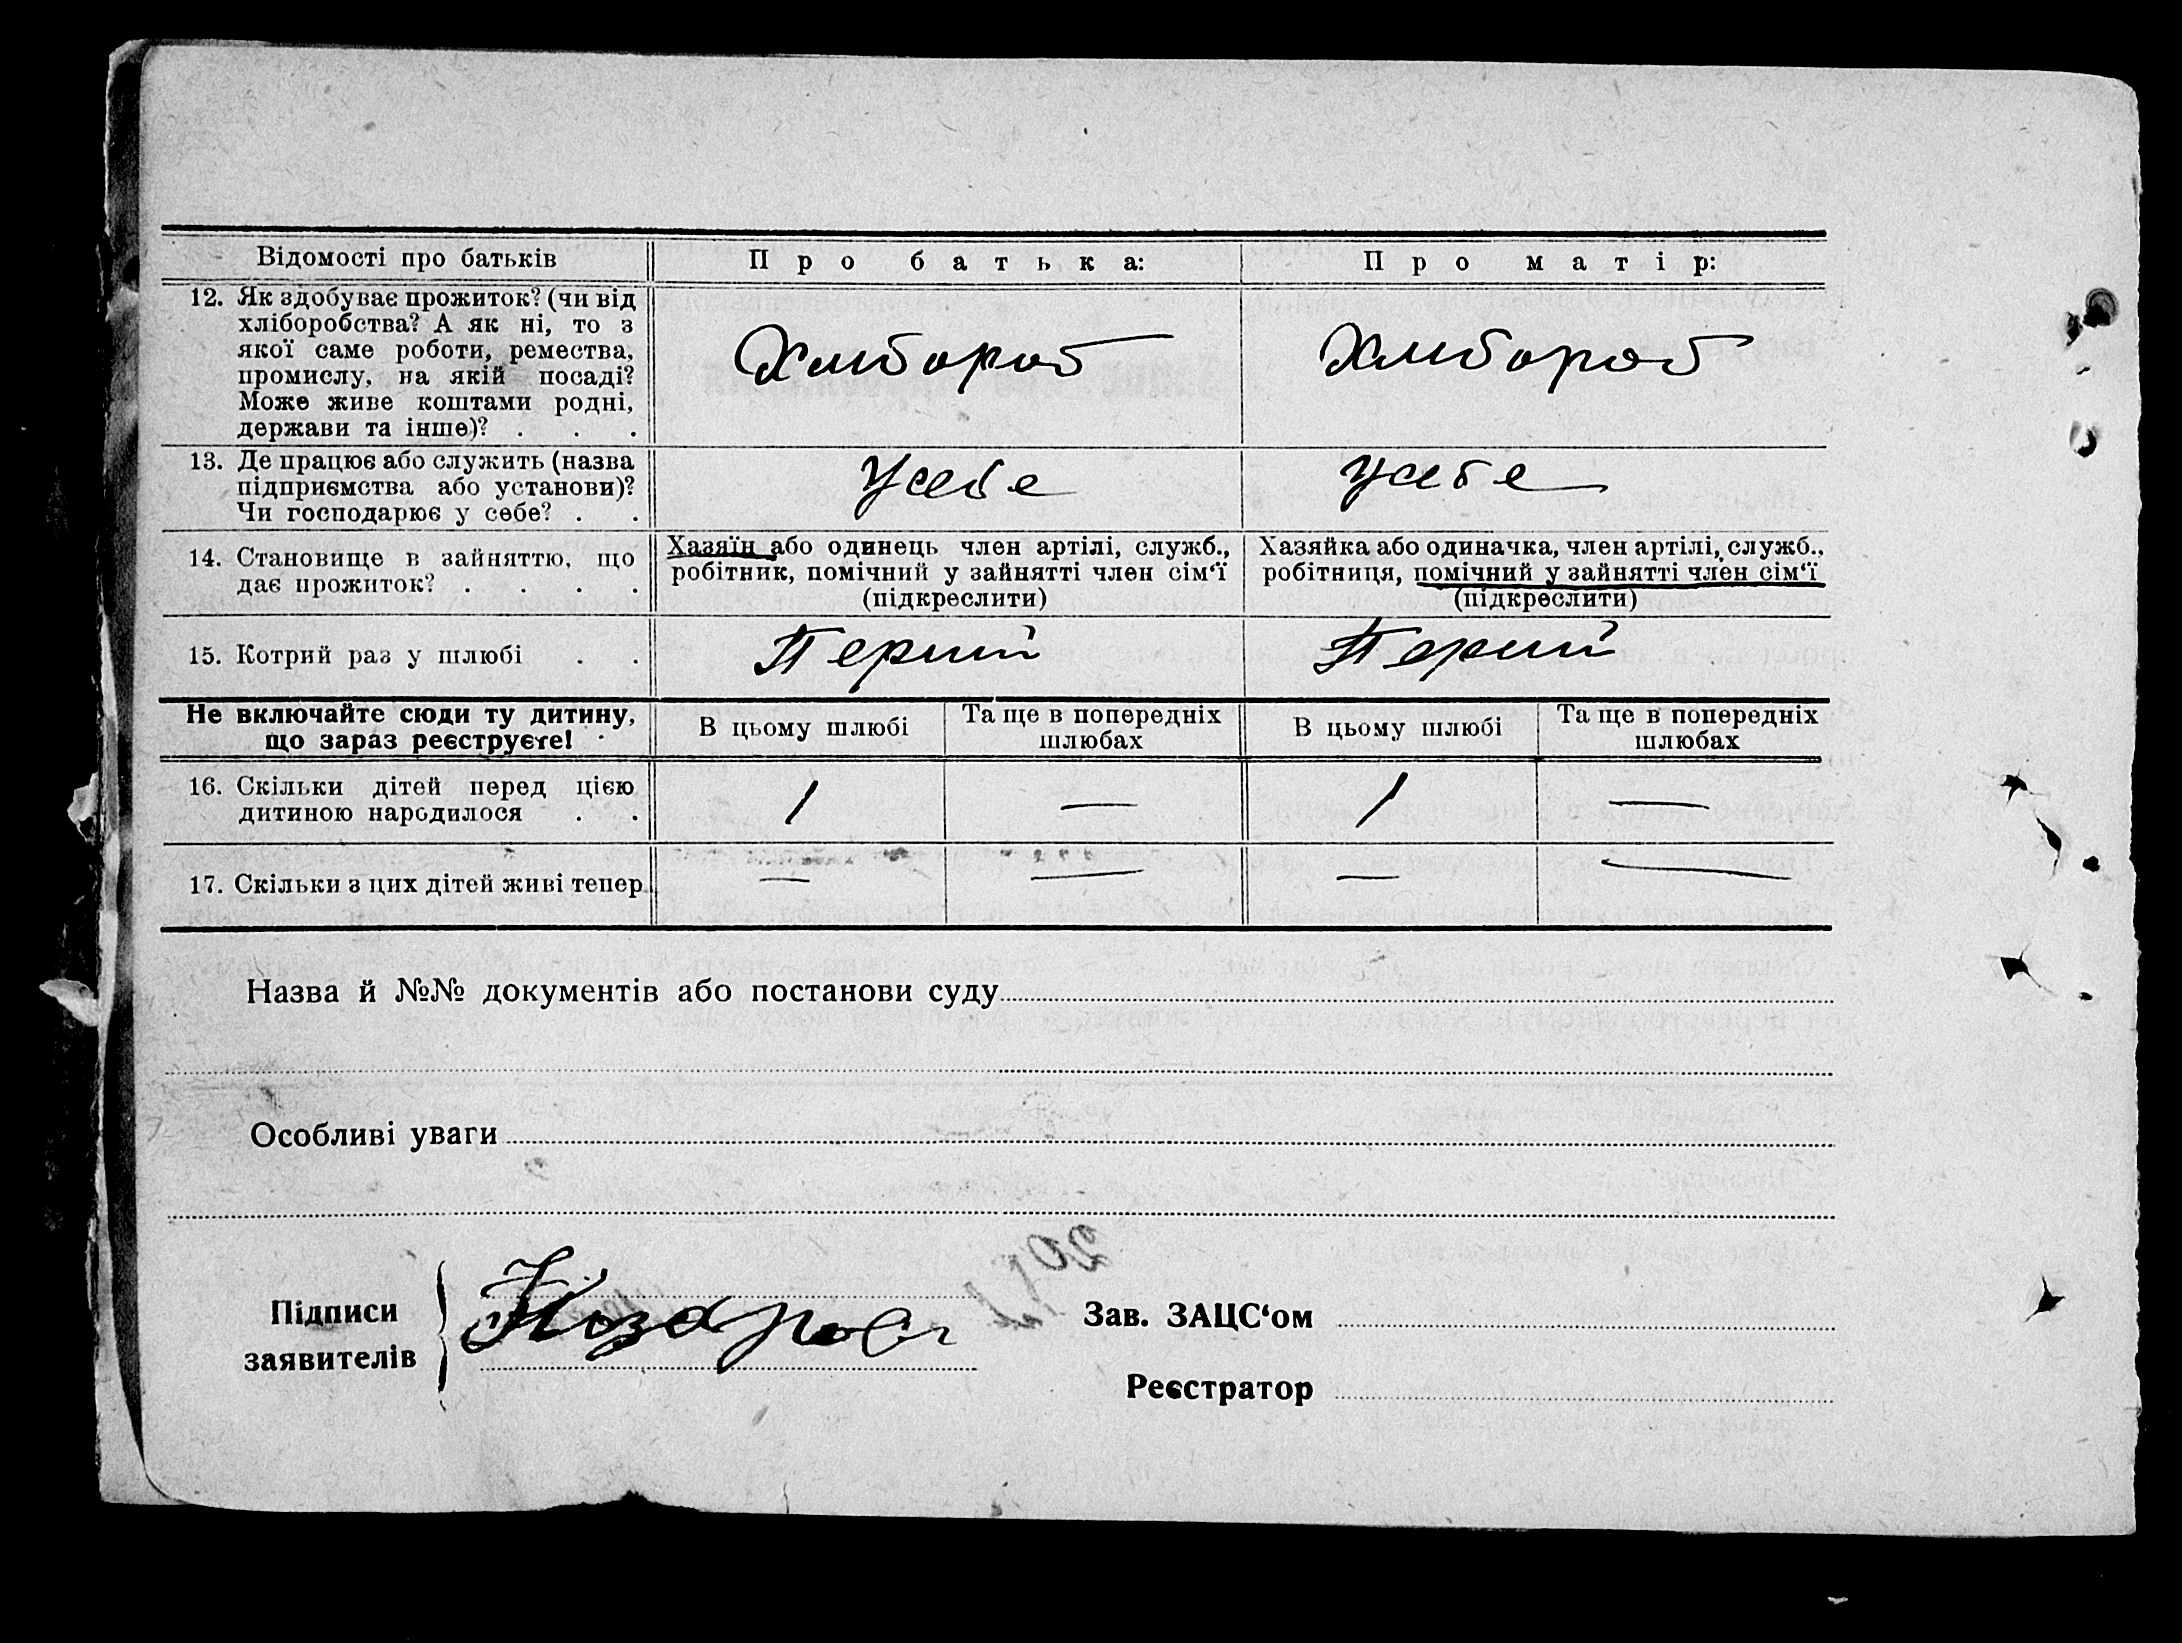 Відомості про батьків
Про батька:
Про матір:
12. Як здобуває прожиток? (чи від
хліборобства? А як ні, то з
якої саме роботи, ремества,
промислу, на якій посаді?
Може живе коштами родні,
держави та інше)? . . .
Хлибороб
Хлибороб
13. Де працює або служить (назва
підприємства або установи)?
Чи господарює у себе? . .
У себе
у себе
14. Становище в зайняттю, що
дає прожиток? . . . .
Хазяїн або одинець член артілі, служб.,
робітник, помічний у зайнятті член сім‘ї
(підкреслити)
Хазяйка або одиначка, член артілі, служб.,
робітниця, помічний у зайнятті член сім‘ї
(підкреслити)
15. Котрий раз у шлюбі . .
Перший
Перший
Не включайте сюди ту дитину,
що зараз реєструєте!
В цьому шлюбі
Та ще в попередніх
шлюбах
В цьому шлюбі
Та ще в попередніх
шлюбах
16. Скільки дітей перед цією
дитиною народилося . .
1
—
1
—
17. Скільки з цих дітей живі тепер.
—
—
—
—
Назва й №№ документів або постанови суду
Особливі уваги
Підписи
заявителів
Зав. ЗАЦС‘ом
Реєстратор